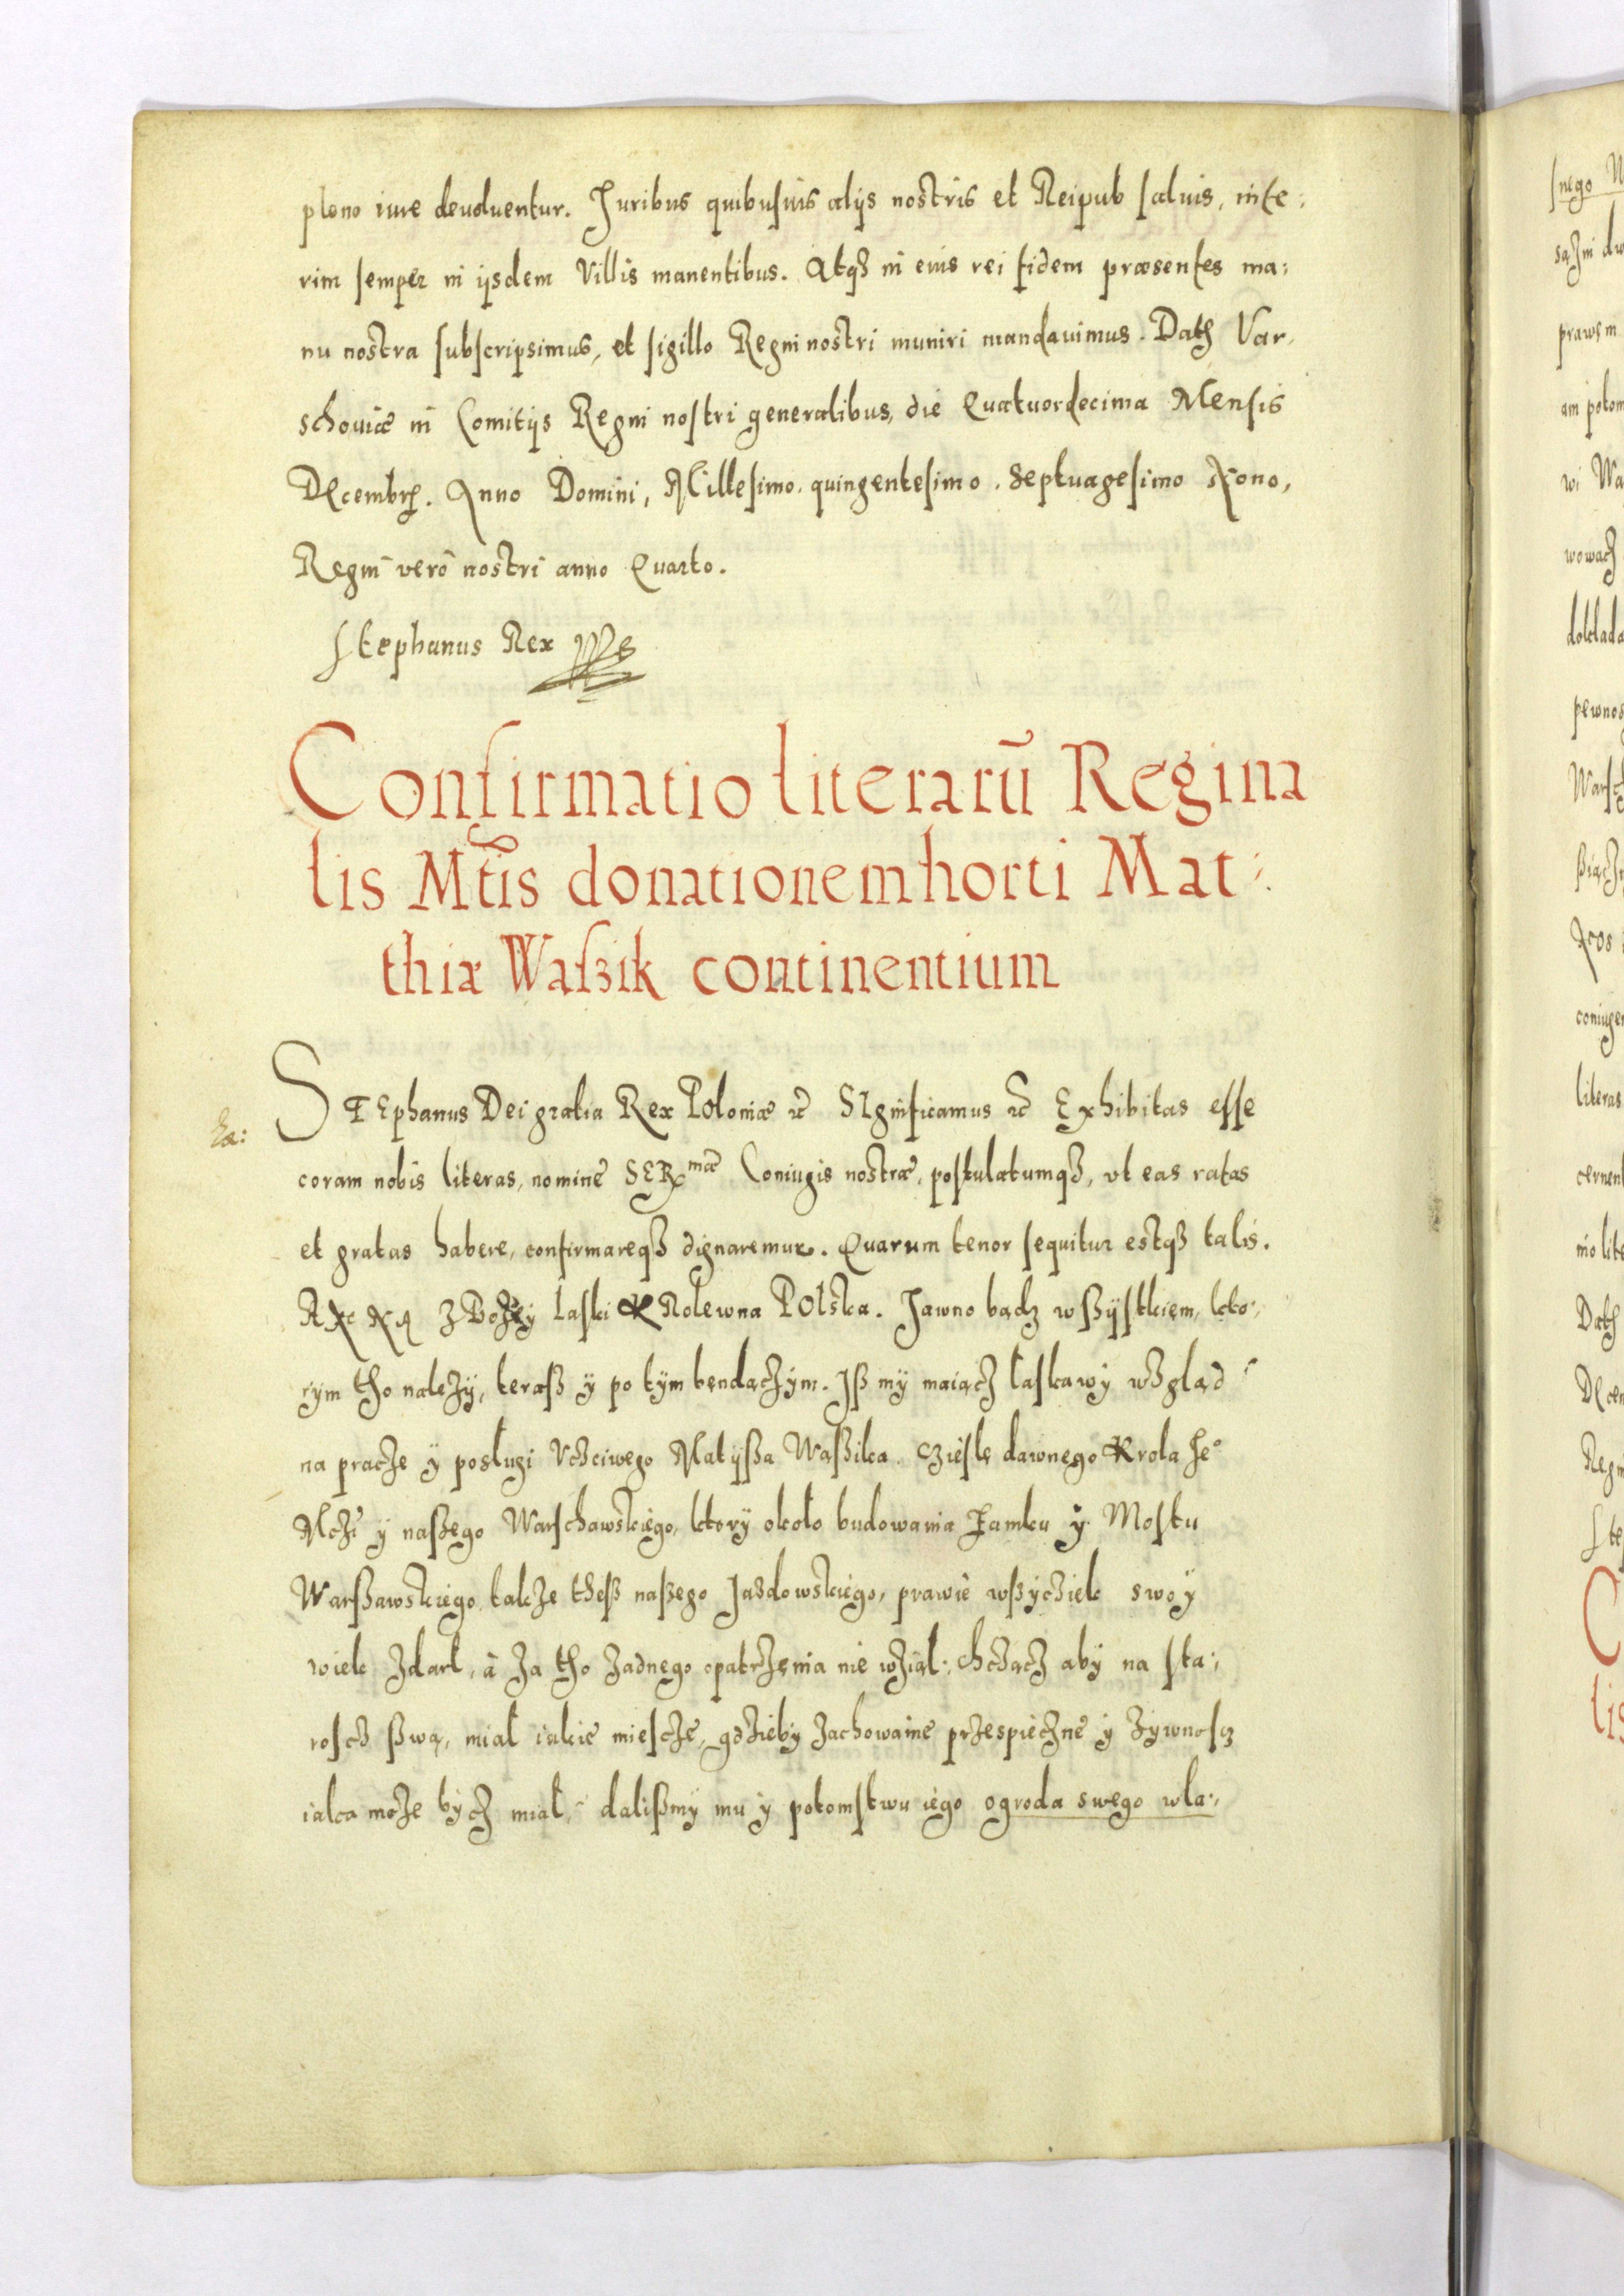 pleno iure deuoluentur. Juribus quibusuis alijs nostris et Reipub saluis, inte:
rim semper in ijsdem Villis manentibus. Atqȝ in eius rei fidem præsentes ma:
nu nostra subscripsimus, et sigillo Regni nostri muniri mandauimus. Dath Var,
schouiæ in Comitijs Regni nostri generalibus, die Quatuordecima Mensis
Decembrꝭ. Anno Domini, Millesimo. quingentesimo. Septuagesimo Nono,
Regni vero nostri anno Quarto.
Stephanus Rex
Confirmatio literarū Regina
lis Mtis donationem horti Mat:
thiæ Waſzik continentium
STEphanus Dei gratia Rex Poloniæ etc SIgnificamus etc Exhibitas esse
coram nobis literas, nomine SERmæ Coniugis nostræ, postulatumqȝ, vt eas ratas
et gratas habere, confirmareqȝ dignaremur. Quarum tenor sequitur estqȝ talis.
ANNA Z Bozey łaski KRolewna POlska. Jawno bądz wßÿstkiem, kto:,
rÿm tho nalezÿ, teraß ÿ po tÿm bendączÿm. Iß mÿ maiącz łaskawÿ wzgląd
na pracze ÿ posługi Vczciwego Matÿßa Waßika cziesle dawnego Krola Jeº
Mczi ÿ naßego Warschawskiego, ktorÿ około budowania Zamku ÿ Mostu
Warßawskiego, takze theß naßego Jazdowskiego, prawie wßÿcziek swoÿ
wiek zdarł, a za tho zadnego opatrzęnia nie wziął:, chcząc abÿ na sta:,
roscz ßwą, miał iakie miescze, gdziebÿ zachowanie przespieczne ÿ zÿwnoscz
iaka moze bÿcz miał, dalißmÿ mu ÿ potomstwu iego ogroda swego wła:,